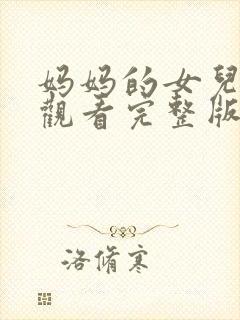 妈妈的女兒
觀看完整版
洛脩寒